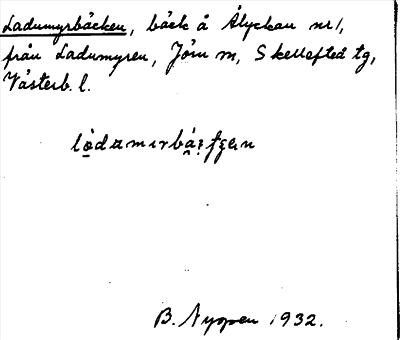 Ladumyrbäcken, bäck å Ålyckan nr 1,
från Ladumyren, Jörn sn, Skellefteå tg,
Västerb. l.
B. Nyopen 1932.